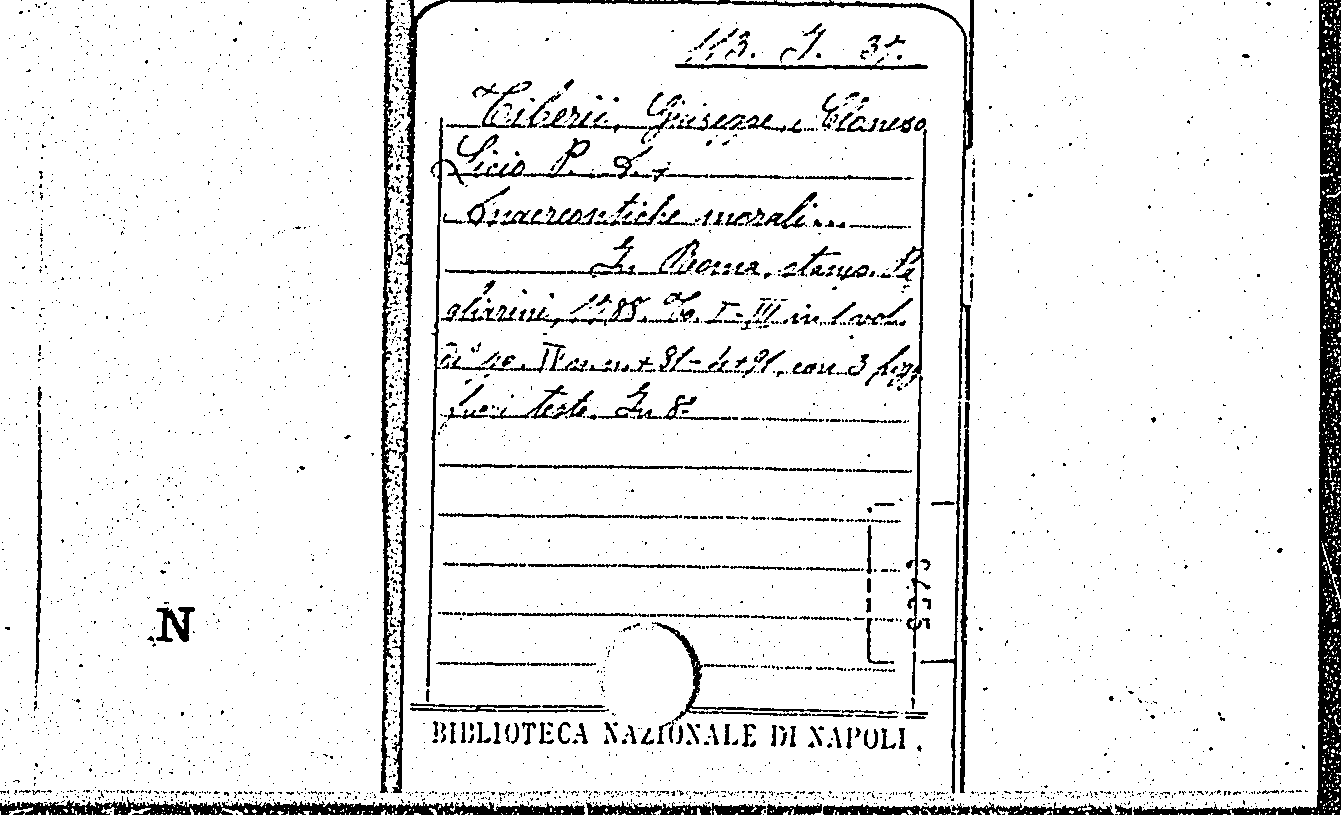 113. J. 37.
Tiberii, Giuseppe, e Claneso
Licio P. A.
Anacreontiche morali...
In Roma, stamp. Pa
gliarini, 1788. To. I-III in 1 vol.
di pp. II nn. + 91 - 4+91, con 3 figg.
fuori testo. In 8°
N
BIBLIOTECA NAZIONALE DI NAPOLI.